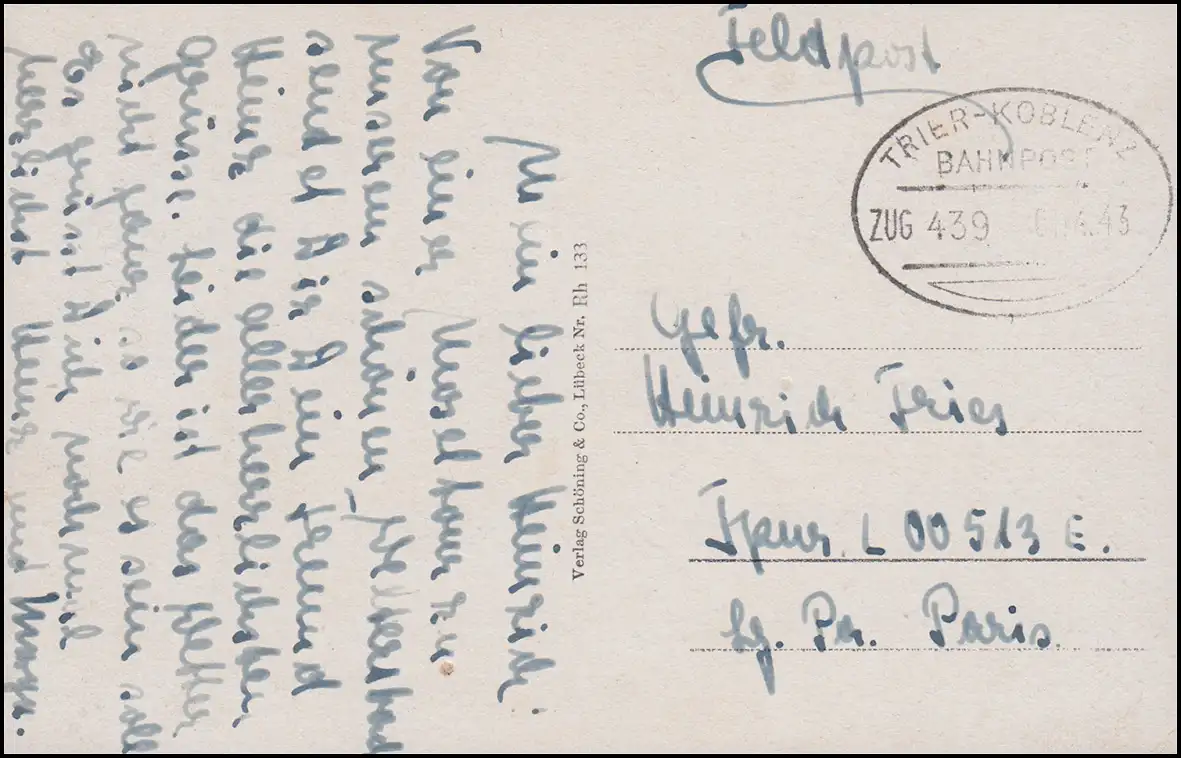 Mein lieber Heinrich!
Von einer Moseltour zu
unserem schönen
sendet Dir Dein Freund
Heinz die allerherzlichsten
Grüsse. Leider ist das Wetter
nicht ganz so wie es sein soll
Es grüsst Dich nochmal
herzlichst Heinz und
Verlag Schöning & Co., Lübeck Nr. Rh 133
Feldpost
TRIER-KOBLENZ
BAHNPOST
ZUG 439 4.43
Gefr.
Heinrich Fries
Fpnr. L 00513 E.
Lg. Pa. Paris.